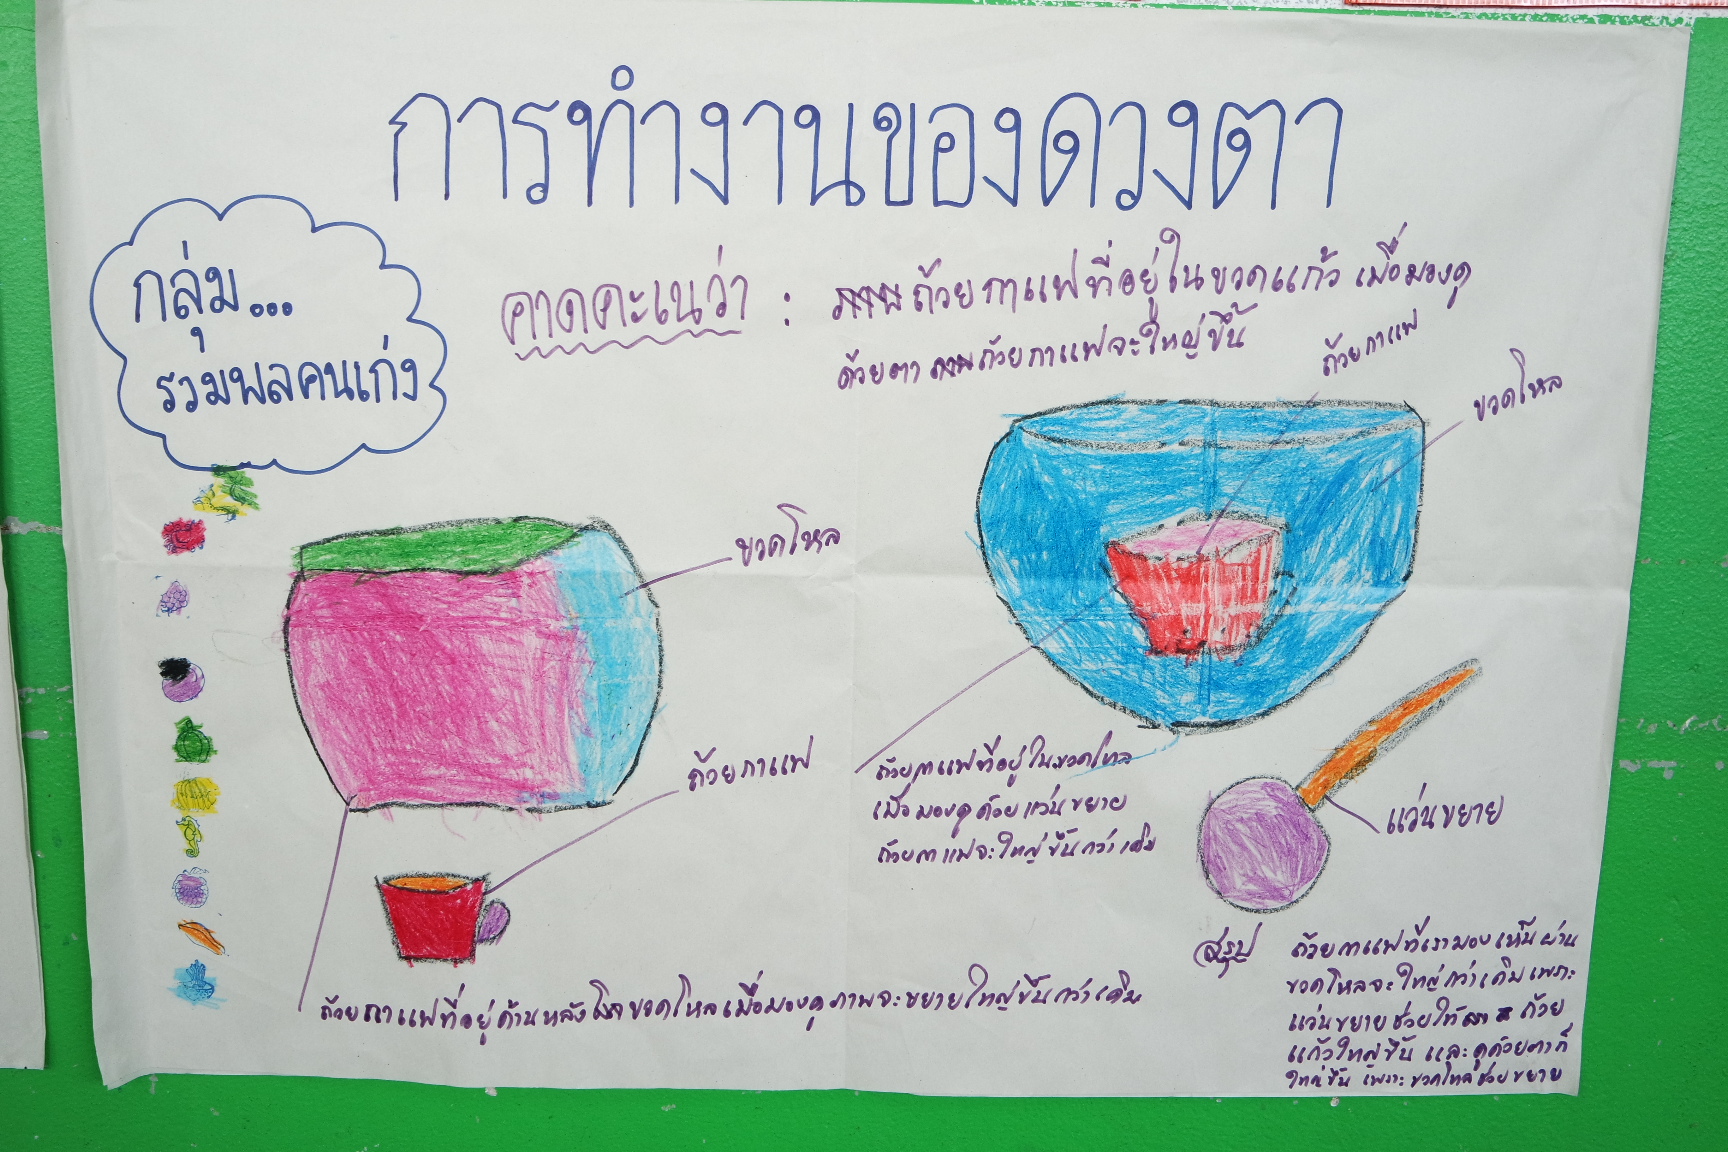 การทำงานของดวงตา
กลุ่ม...
รวมพลคนเก่ง
คาดคะเนว่า : ถ้วยกาแฟที่อยู่ในขวดแก้ว เมื่อมองดู
ด้วยตา ถ้วยกาแฟจะใหญ่ขึ้น
ถ้วยกาแฟ
ขวดโหล
ขวดโหล
ถ้วยกาแฟ
ถ้วยกาแฟที่อยู่ในขวดโหล
เมื่อมองดูด้วยแว่นขยาย
ถ้วยกาแฟจะใหญ่ขึ้นกว่าเดิม
แว่นขยาย
ถ้วยกาแฟที่อยู่ด้านหลังขวดโหลเมื่อมองดูภาพจะขยายใหญ่ขึ้นกว่าเดิม
สรุป ถ้วยกาแฟที่เรามองเห็นผ่าน
ขวดโหลจะใหญ่กว่าเดิมเพราะ
แว่นขยายช่วยให้ ถ้วย
แก้วใหญ่ขึ้น และดูด้วยตาก็
ใหญ่ขึ้น เพราะขวดโหลช่วยขยาย